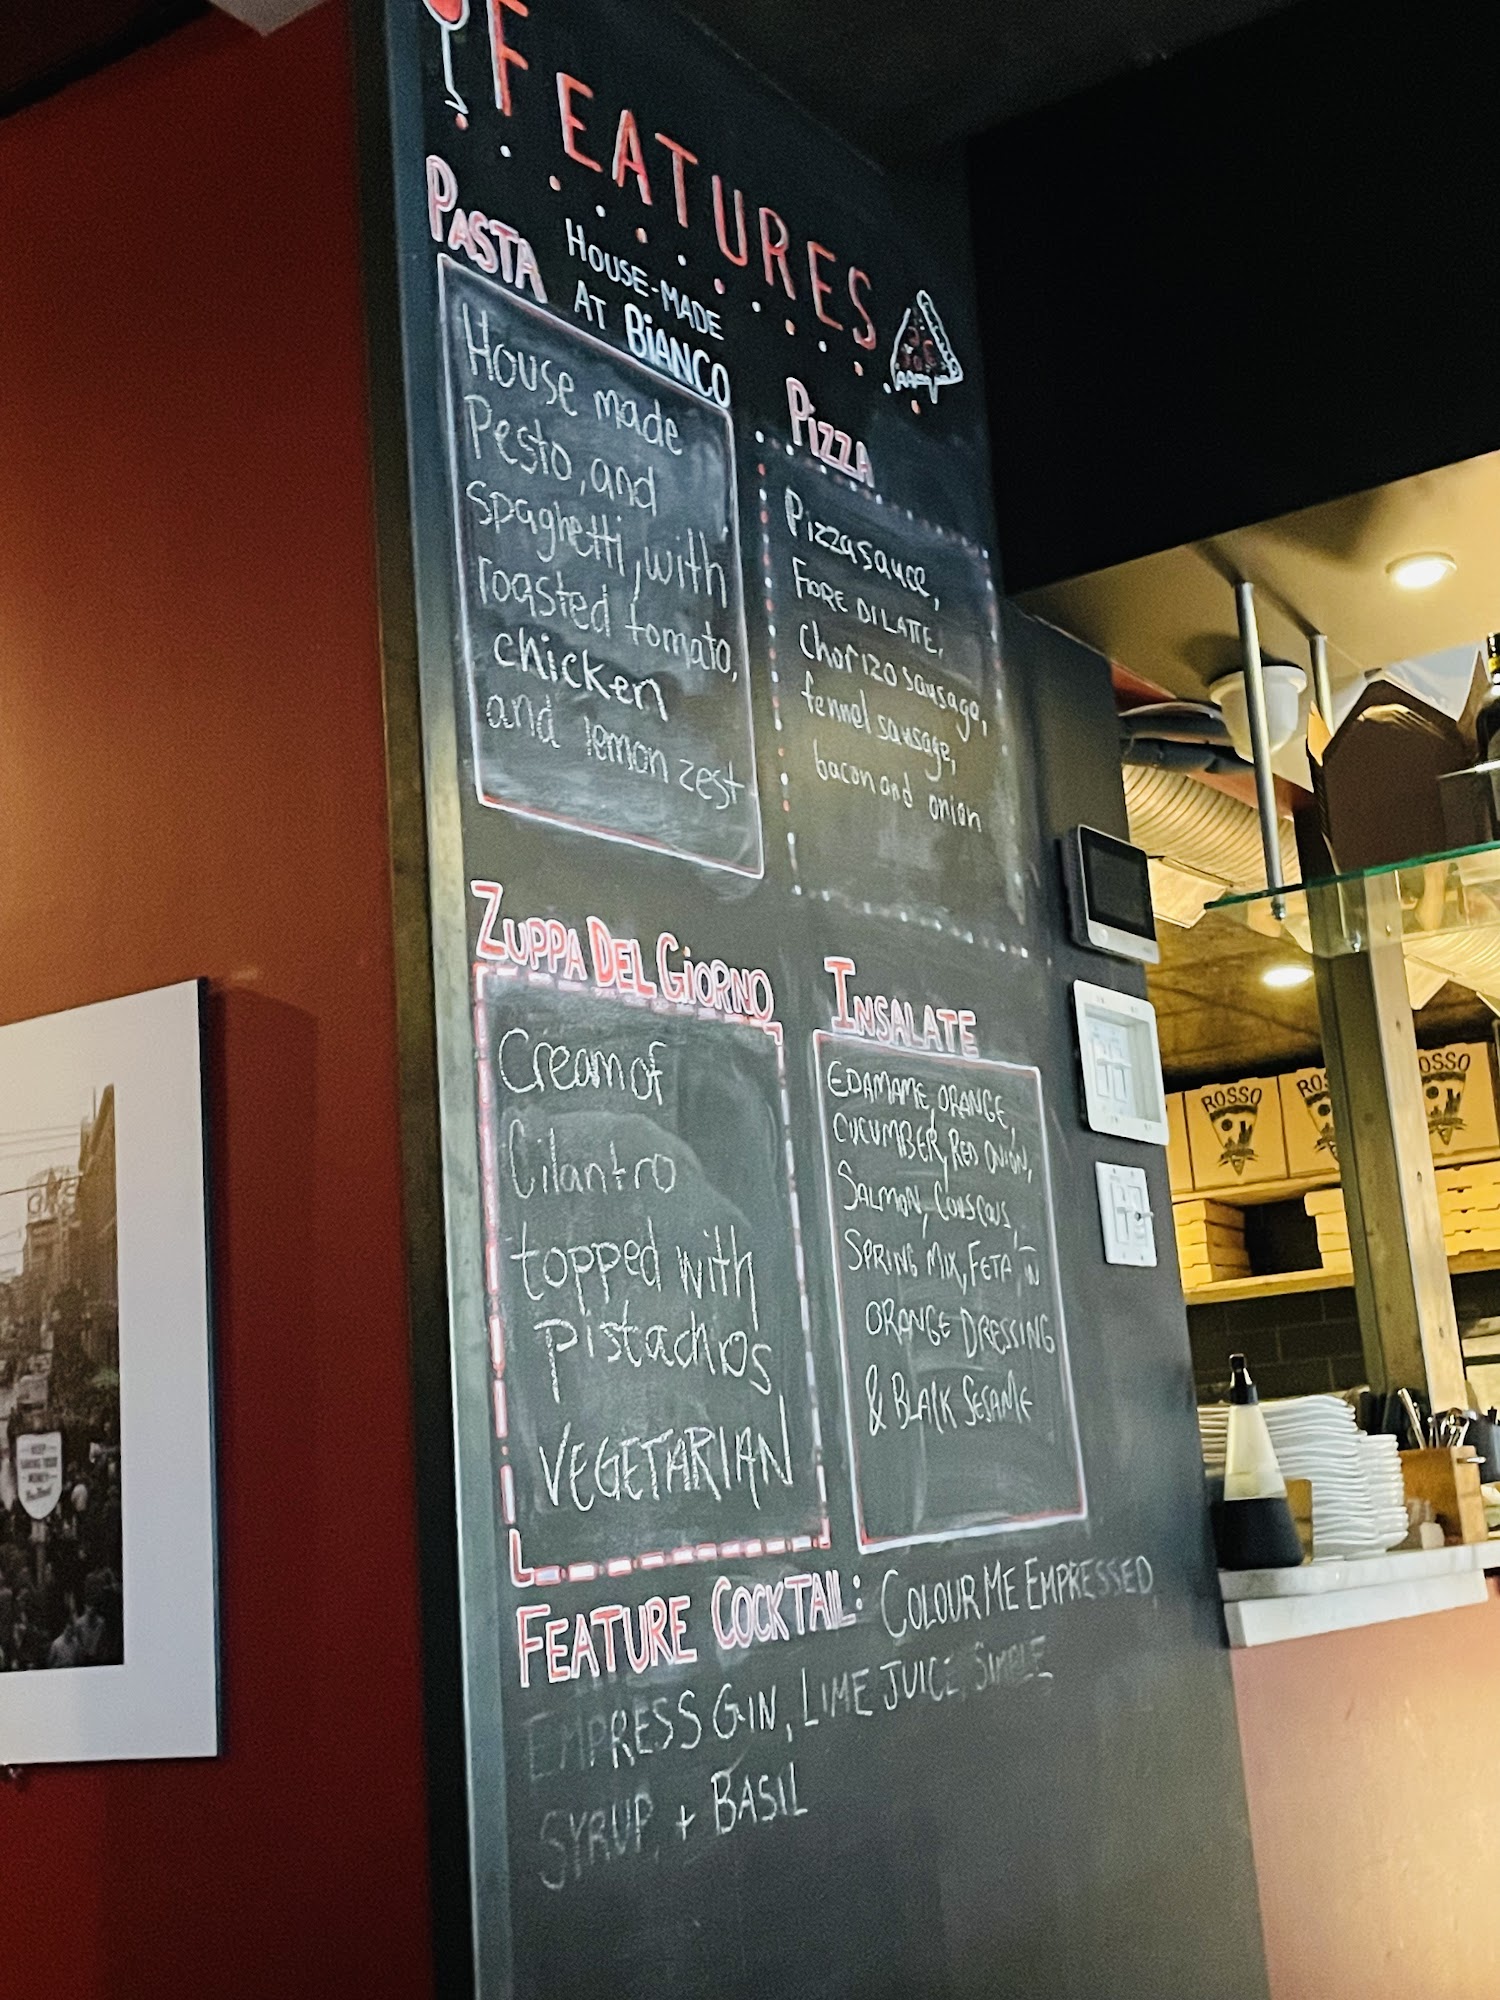 FEATURES
PASTA
HOUSE-MADE
AT BiANCO
House made
Pesto, and
spaghetti, with
roasted tomato,
chicken
and lemon zest
PiZZA
Pizza sauce,
FIORE DI LATTE,
chorizo sausage,
fennel sausage,
bacon and onion
ZUPPA DEL GiORNO
Cream of
Cilantro
topped with
pistachios
VEGETARIAN
INSALATE
EDAMAME, ORANGE,
CUCUMBER, RED ONION,
SALMON, COUSCOUS,
SPRING MIX, FETA, IN
ORANGE DRESSING
& BLACK SESAME
FEATURE COCKTAIL: COLOUR ME EMPRESSED,
EMPRESS GIN, LIME JUICE, SIMPLE
SYRUP, + BASIL
ROSSO
ROS
OSSO
KEEP